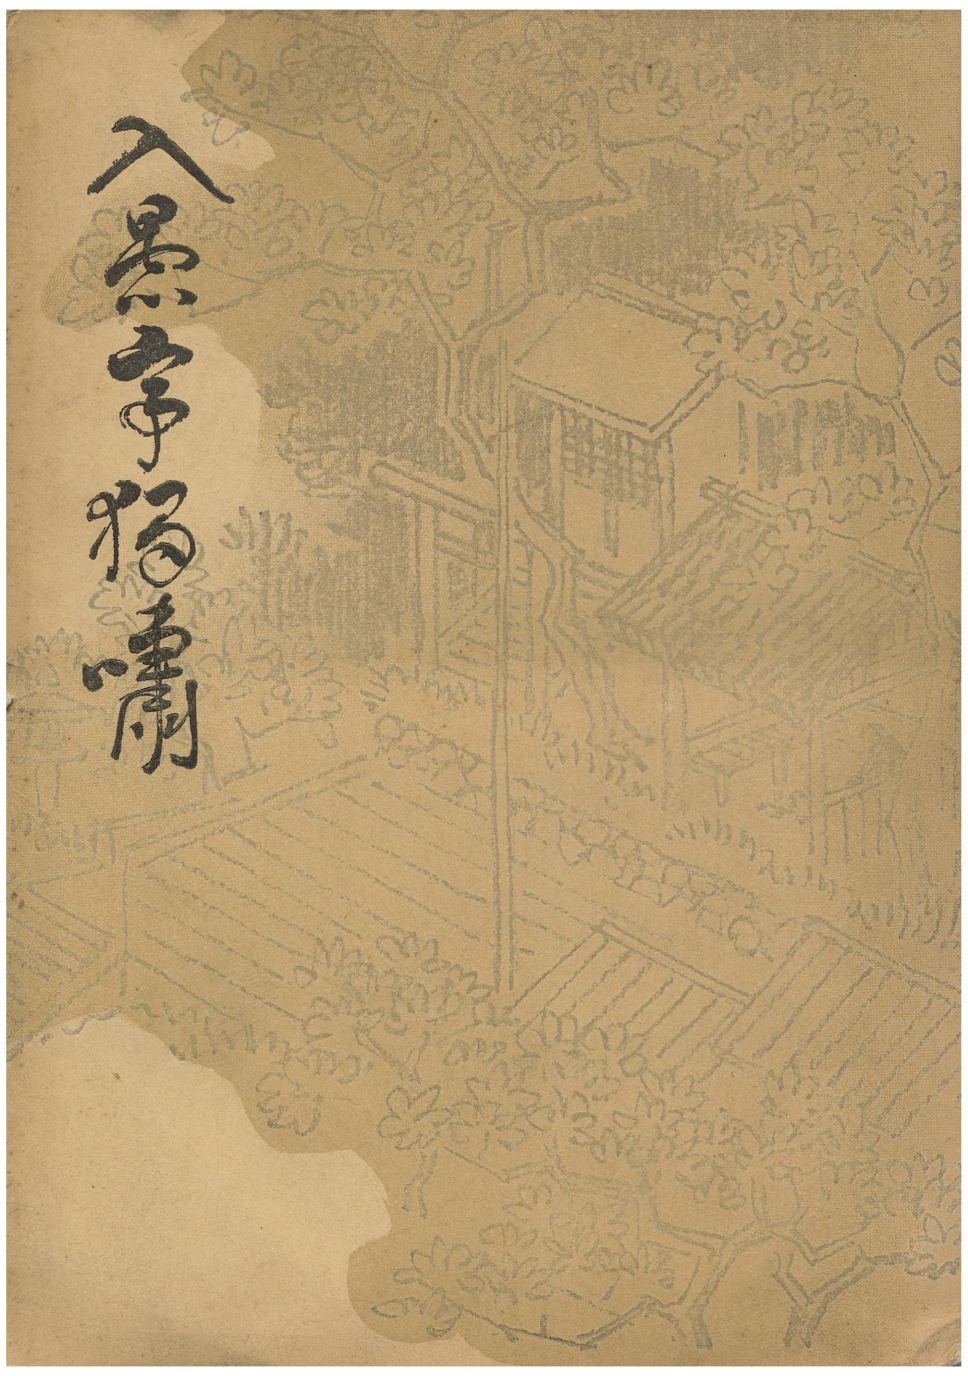 入愚亭獨嘯